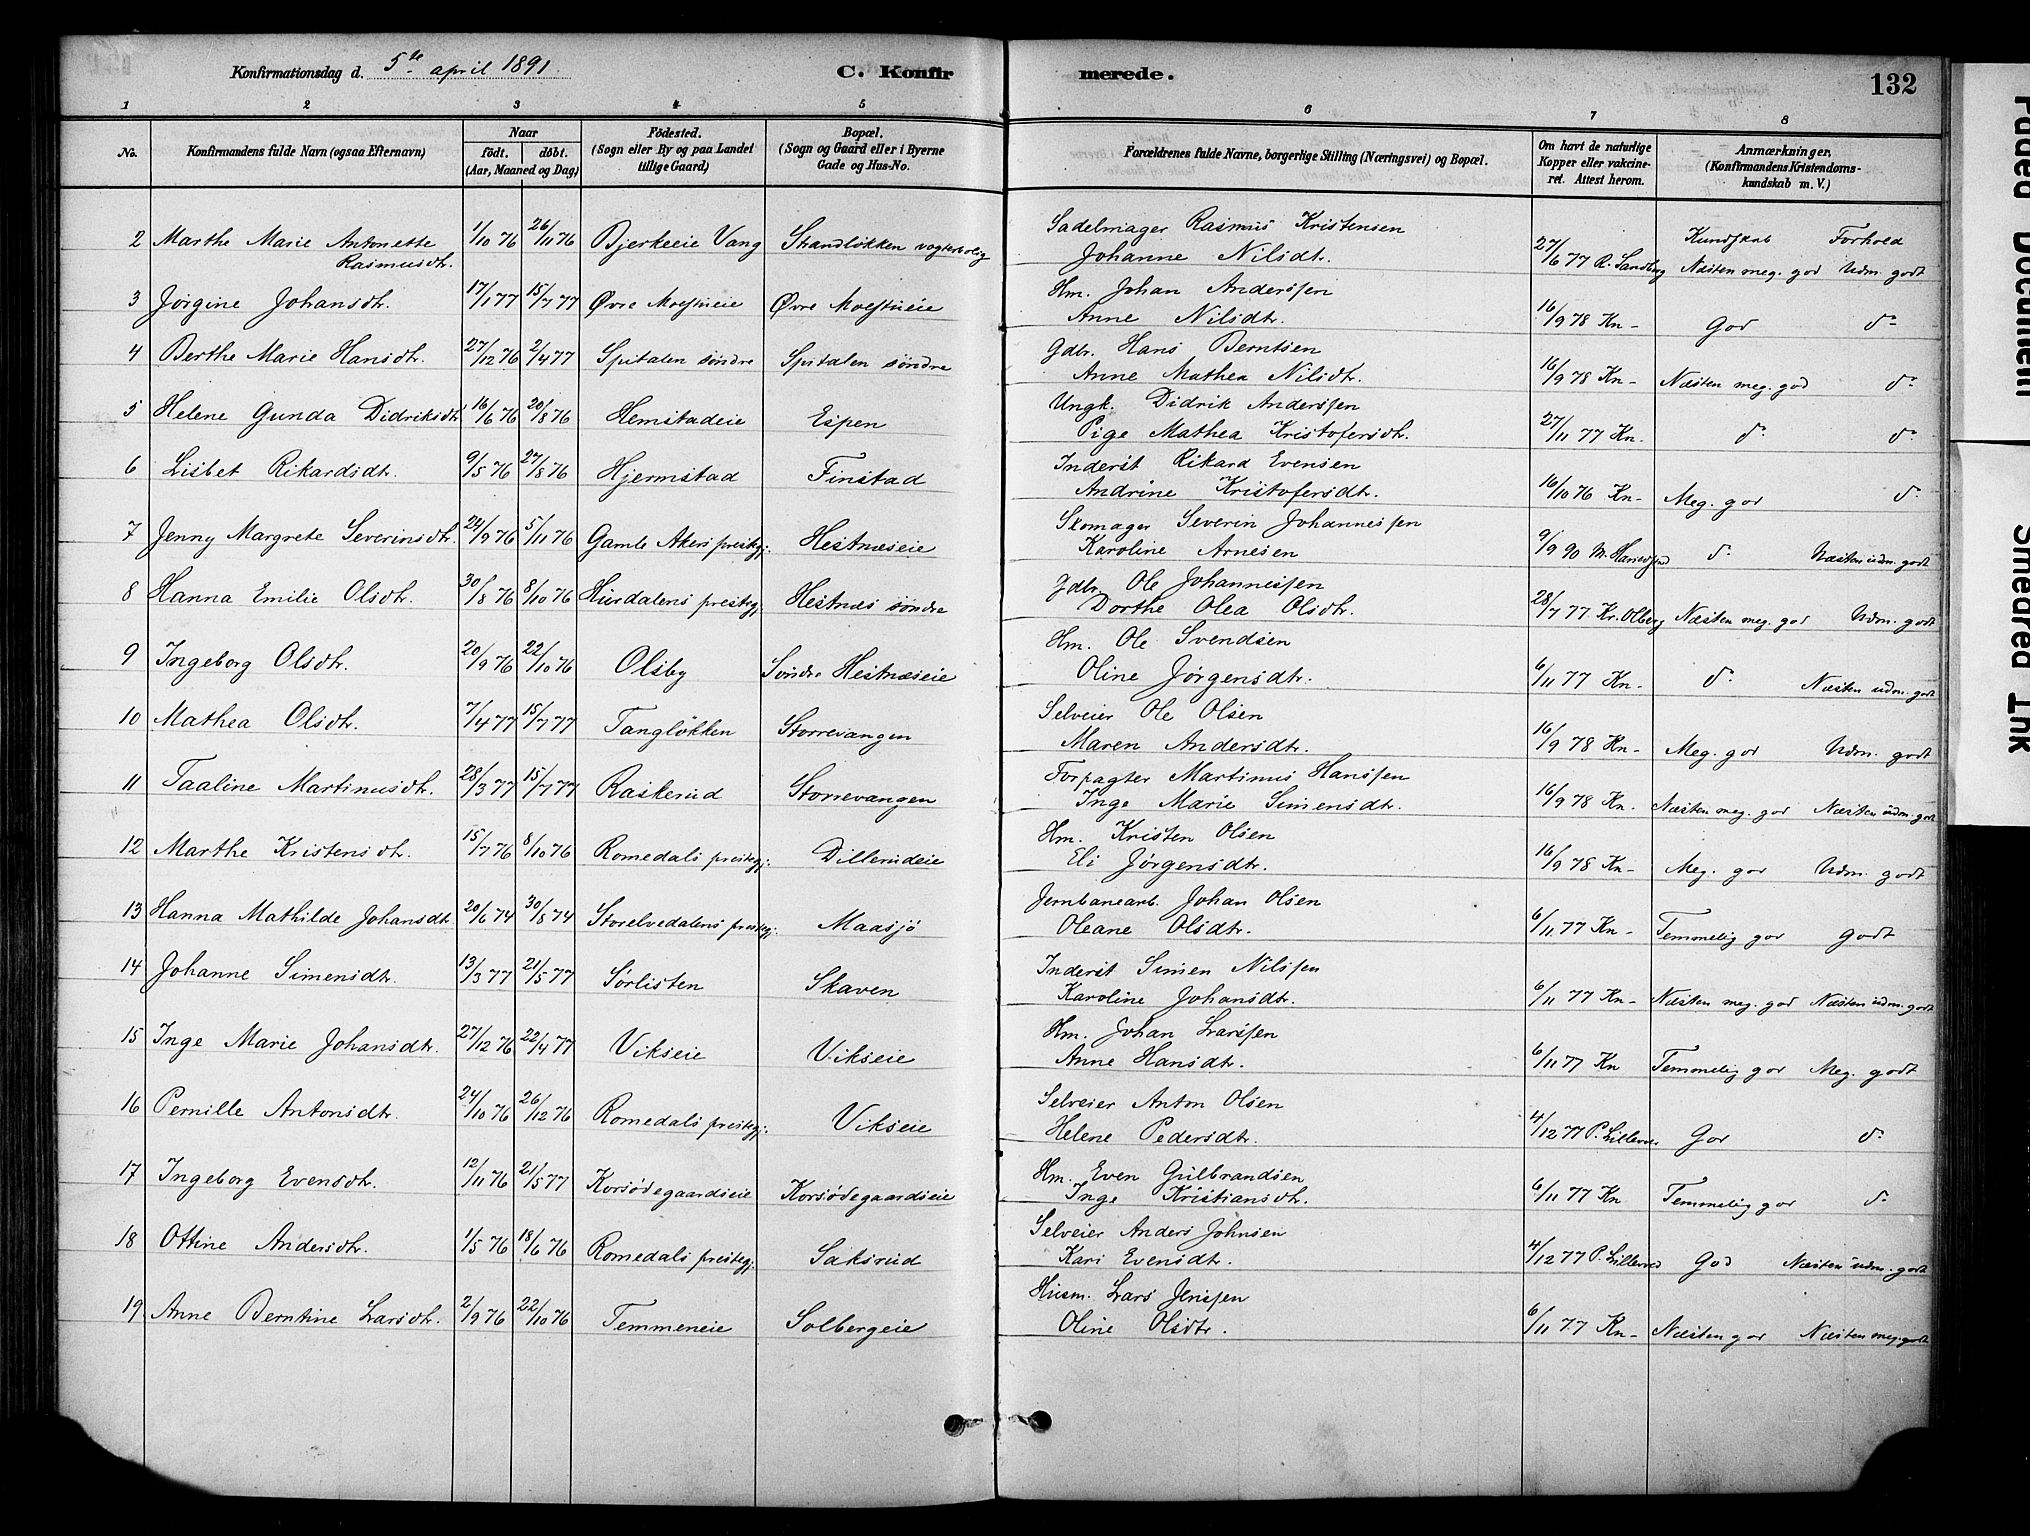 Konfirmationsdag d. 5te april 1891 C. Konfirmerede. 132
1 2 3 4 5 6 7 8
No. Konfirmandens fulde Navn (ogsaa Efternavn) Naar født. døbt. (Aar, Maaned og Dag) Födested. (Sogn eller By og paa Landet tillige Gaard) Bopæl. (Sogn og Gaard eller i Byerne Gade og Hus-No. Forældrenes fulde Navne, borgerlige Stilling (Næringsvei) og Bopæl. Om havt de naturlige Kopper eller vakcineret. Attest herom. Anmærkninger, (Konfirmandens Kristendomskundskab m. V.)
Kundskab Forhold
2 Marthe Marie Antonette Rasmusdtr. 1/10 76 26/11 76 Bjerkeeie Vang Strandløkken vogterbolig Sadelmager Rasmus Kristensen Johanne Nilsdtr. 27/6 77 R. Sandberg Næsten meg. god Udm. godt
3 Jørgine Johansdtr. 17/1 77 15/7 77 Øvre Moestueie Øvre Moestueie Hm. Johan Anderssen Anne Nilsdtr. 16/9 78 Kn- God do
4 Berthe Marie Hansdtr. 27/12 76 2/4 77 Spitalen søndre Spitalen søndre Gdbr. Hans Berntsen Anne Mathea Nilsdtr. 16/9 78 Kn- Næsten meg. god do
5 Helene Gunda Didriksdtr 16/6 76 20/8 76 Hemstadeie Espen Ungk. Didrik Anderssen Pige Mathea Kristofersdtr. 27/11 77 Kn. do do
6 Lisbet Rikardsdtr. 9/5 76 27/8 76 Hjermstad Finstad Inderst Rikard Evensen Andrine Kristofersdtr. 16/10 76 Kn- Meg. god do
7 Jenny Margrete Severinsdtr. 24/9 76 5/11 76 Gamle Akers prestegj. Hestnæseie Skomager Severin Johannessen Karoline Arnesen 9/9 90 do Næsten udm. godt
8 Hanna Emilie Olsdtr. 30/8 76 8/10 76 Hurdalens prestegj. Hestnæs søndre Gdbr. Ole Johannessen Dorthe Olea Olsdtr. 28/7 77 Kr. Olberg Næsten meg. god Udm. godt
9 Ingeborg Olsdtr. 20/9 76 22/10 76 Olsby Søndre Hestnæseie Hm. Ole Svendsen Oline Jørgensdtr. 6/11 77 Kn- do Næsten udm. godt
10 Mathea Olsdtr. 7/4 77 15/7 77 Tangløkken Storrevangen Selveier Ole Olsen Maren Andersdtr. 16/9 78 Kn- Meg. god Udm. godt
11 Taaline Martinusdtr. 28/3 77 15/7 77 Raskerud Storrevangen Forpagter Martinus Hanssen Inge Marie Simensdtr. 16/9 78 Kn. Næsten meg. god Næsten udm. godt
12 Marthe Kristensdtr. 15/7 76 8/10 76 Romedals prestegj. Dillerudeie Hm. Kristen Olsen Eli Jørgensdtr. 16/9 78 Kn- Meg. god Udm. godt
13 Hanna Mathilde Johansdtr. 20/6 74 30/8 74 Storelvedalens prestegj. Maasjø Jernbanearb. Johan Olsen Oleane Olsdtr. 6/11 77 Kn- Temmelig god godt
14 Johanne Simensdtr. 13/3 77 21/5 77 Sørlisten Skaven Inderst Simen Nilssen Karoline Johansdtr. 6/11 77 Kn- Næsten meg. god Næsten udm. godt
15 Inge Marie Johansdtr. 27/12 76 22/4 77 Vikseie Vikseie Hm. Johan Larssen Anne Hansdtr. 6/11 77 Kn Temmelig god Meg. godt
16 Pernille Antonsdtr. 24/10 76 26/12 76 Romedals prestegj. Vikseie Selveier Anton Olsen Helene Pedersdtr. 4/12 77 God do
17 Ingeborg Evensdtr. 12/11 76 21/5 77 Korsødegaardseie Korsødegaardseie Hm. Even Gulbrandsen Inge Kristiansdtr. 6/11 77 Kn Temmelig god do
18 Ottine Andersdtr. 1/5 76 18/6 76 Romedals prestegj. Saksrud Selveier Anders Johnsen Kari Evensdtr. 4/12 77 God Næsten udm. godt
19 Anne Berntine Larsdtr. 2/9 76 22/10 76 Temmeneie Solbergeie Husm. Lars Jenssen Oline Olsdtr. 6/11 77 Kn- Næsten god Næsten meg. godt
Faded Document
Smeared Ink